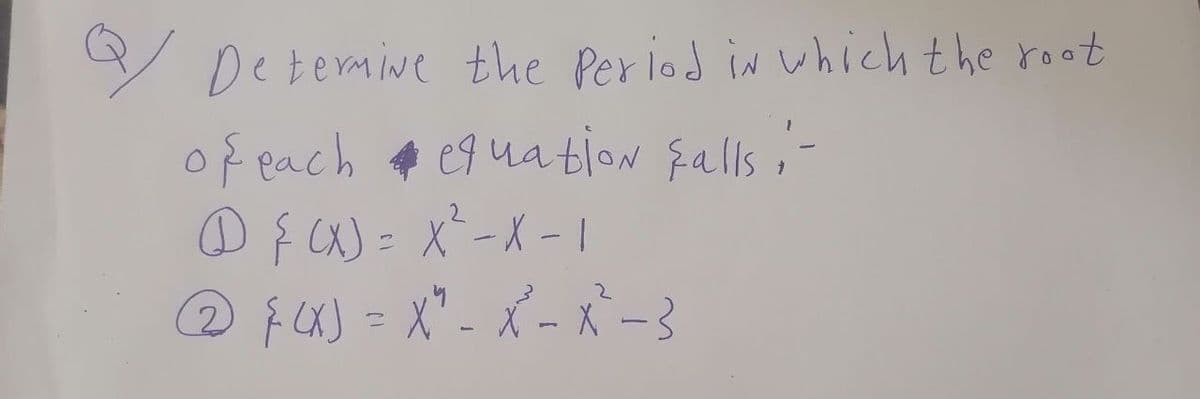 Q/ Determine the Period in which the root
of each equation falls :-
① f(x) = x² - x - 1
② f(x) = x⁴ - x³ - x² - 3